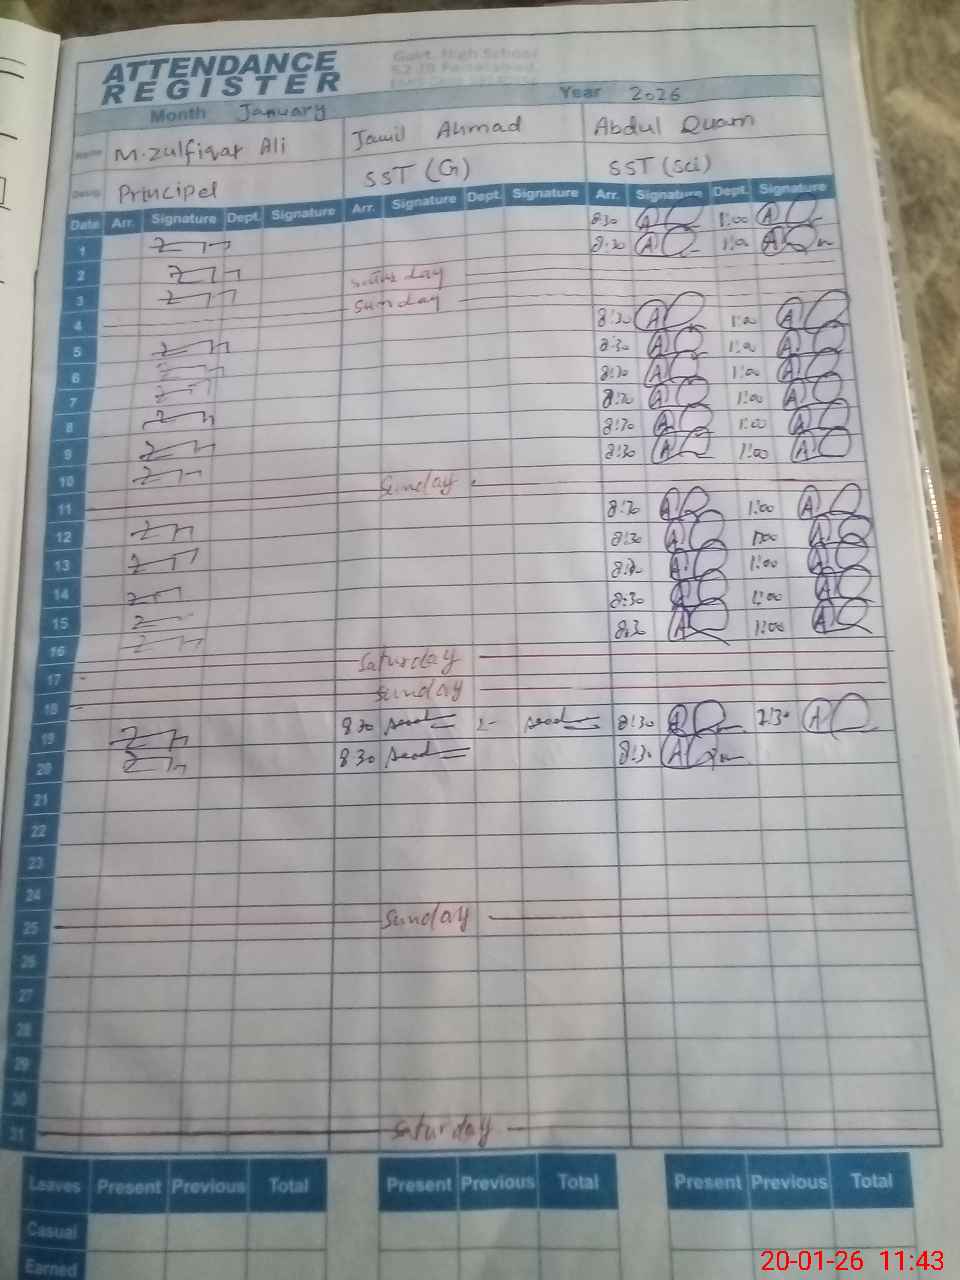 Govt. High School
ATTENDANCE
REGISTER
Month January Year 2026
Name M. Zulfiqar Ali Jamil Ahmad Abdul Quam
Desig. Principel SST (G) SST (Sci)
Date Arr. Signature Dept. Signature Arr. Signature Dept. Signature Arr. Signature Dept. Signature
1 8:30 1:00
2 8:30 1:00
3 Saturday
4 Sunday
5 8:30 1:00
6 8:30 1:00
7 8:30 1:00
8 8:30 1:00
9 8:30 1:00
10 8:30 1:00
11 Sunday
12 8:30 1:00
13 8:30 1:00
14 8:30 1:00
15 8:30 1:00
16 8:30 1:00
17 Saturday
18 Sunday
19 8 30 8:30
20 8 30 8:30
21
22
23
24
25 Sunday
26
27
28
29
30
31 Saturday
Leaves Present Previous Total Present Previous Total Present Previous Total
Casual
Earned
20-01-26 11:43